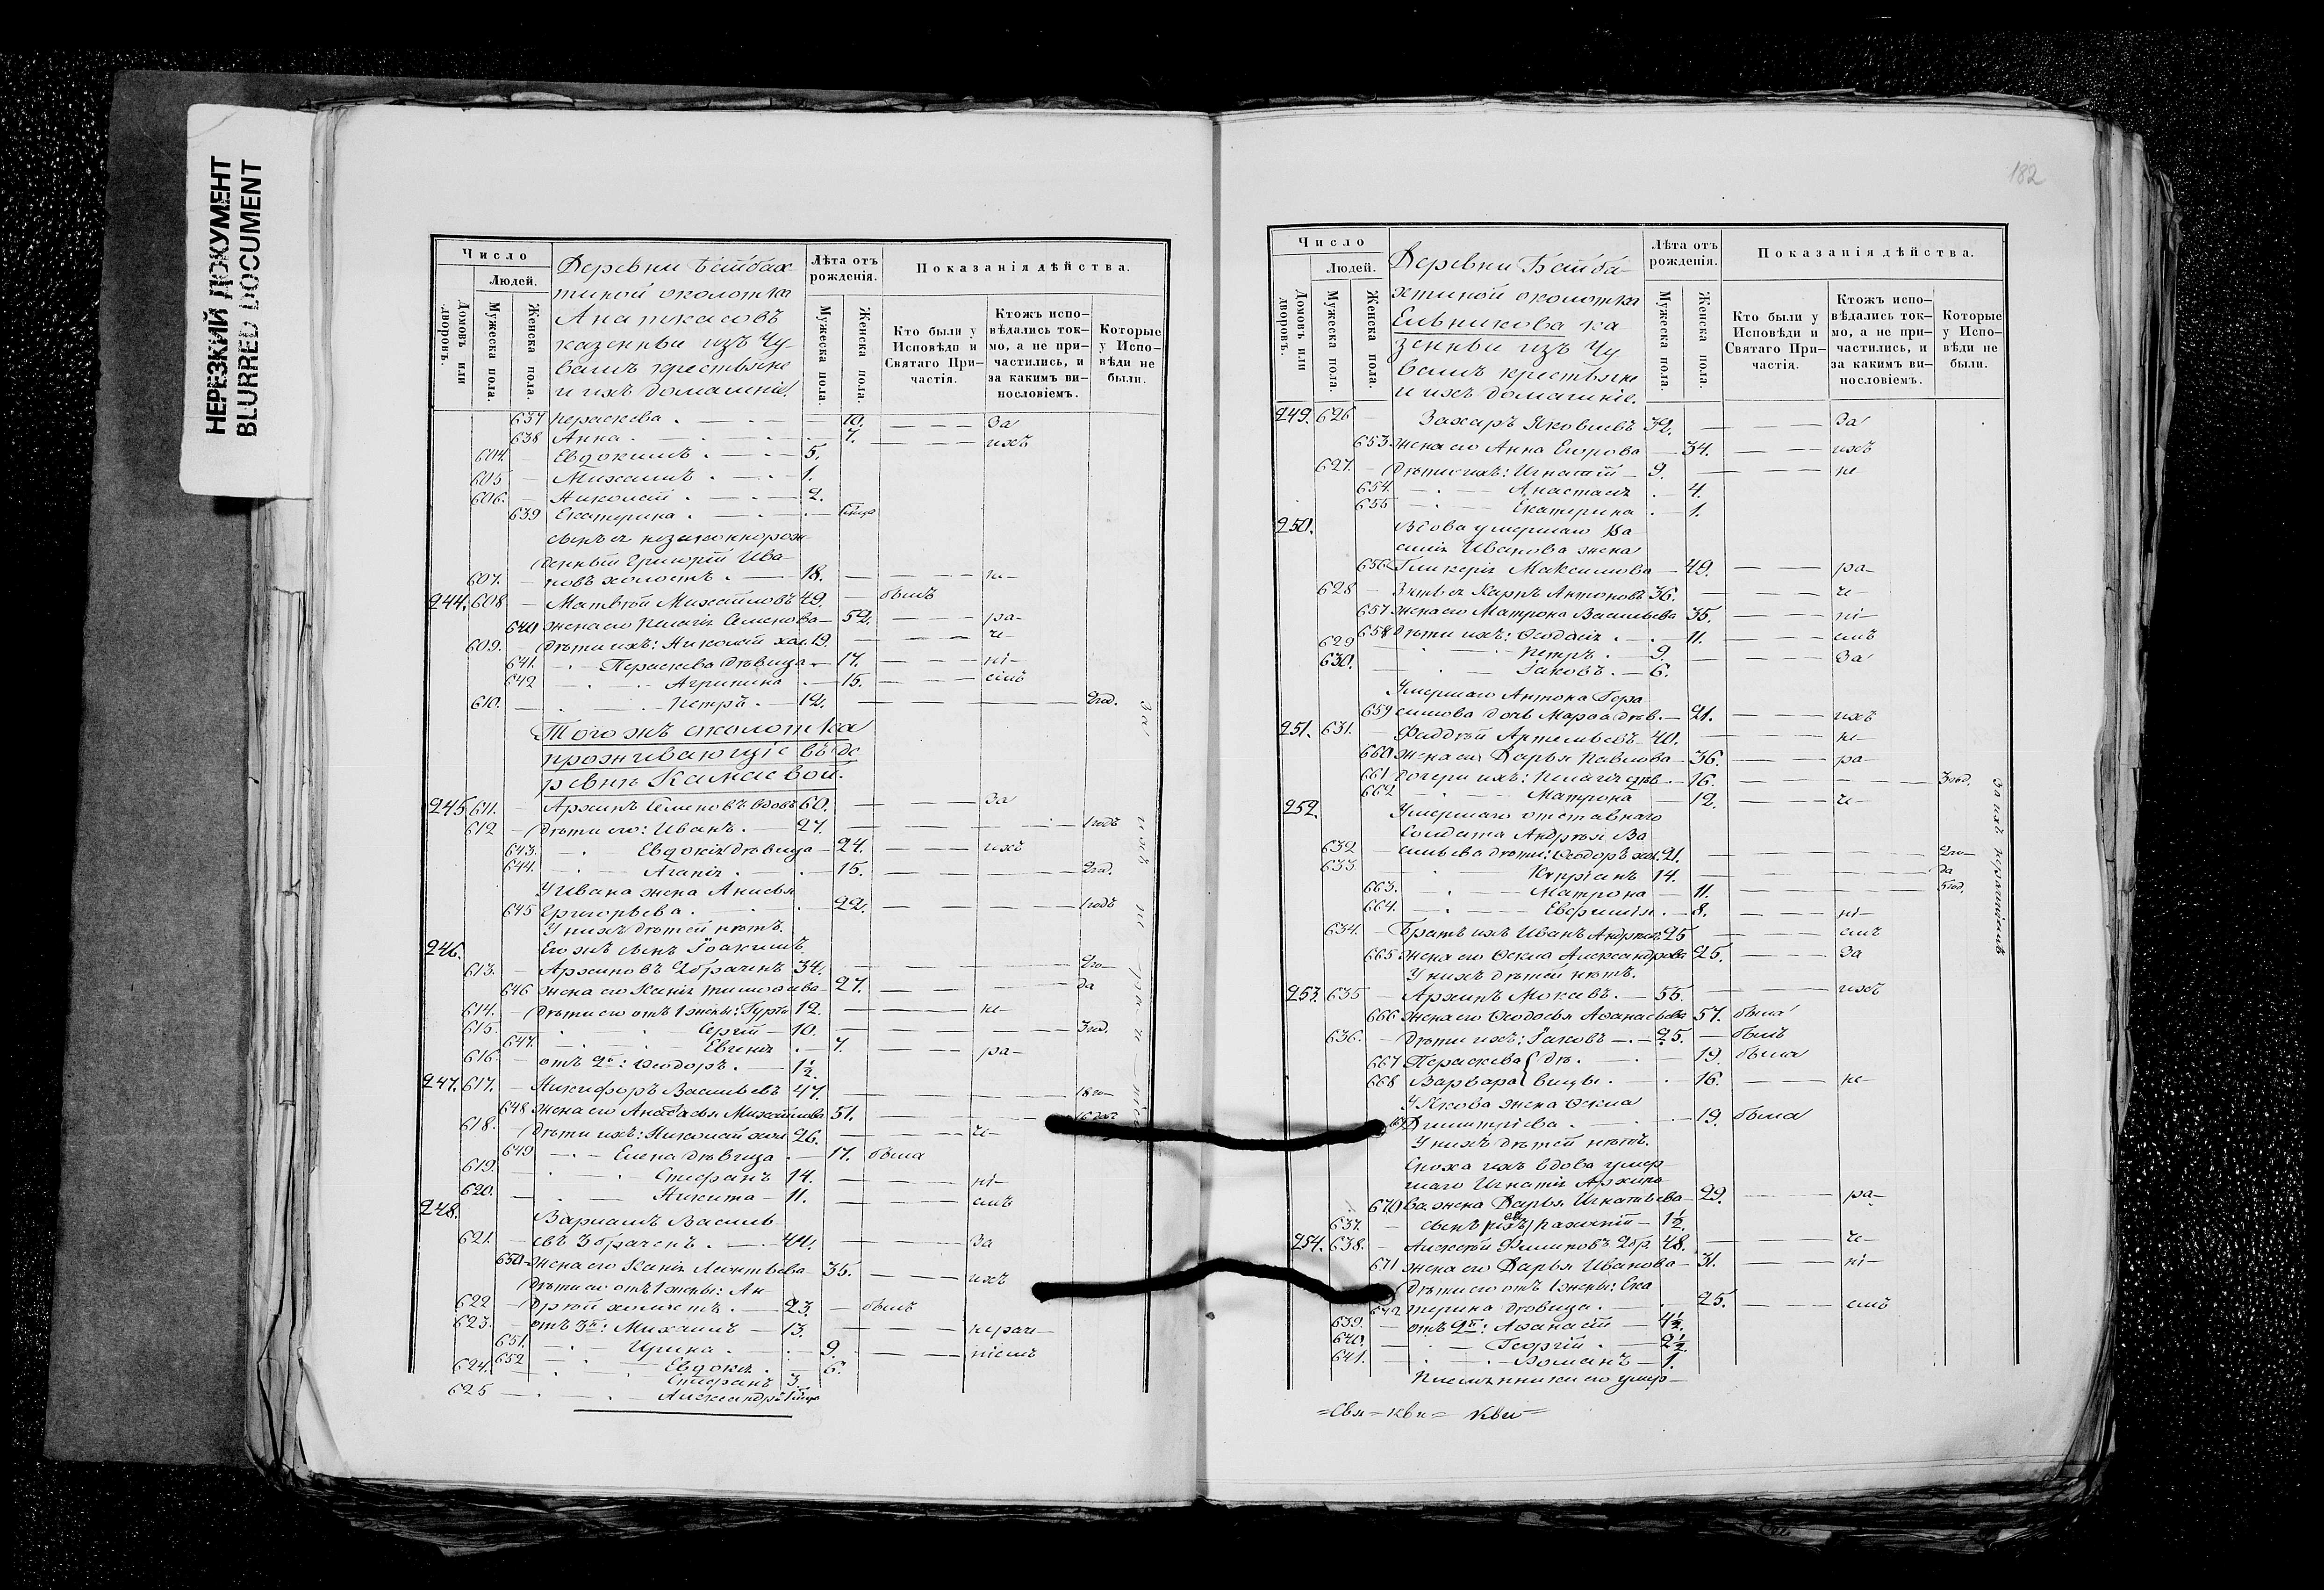 НЕРЕЗКИЙ ДОКУМЕНТ
BLURRED DOCUMENT
Число
Людей.
Домовъ или дворовъ.
Мужеска пола.
Женска пола.
Деревни Байбах-
тиной околотка
Анаткасовъ
казенныи изъ Чу
вашъ крестьяне
и ихъ домашніе.
Лѣта отъ рожденія.
Мужеска пола.
Женска пола.
Показанія дѣйства.
Кто были у Исповѣди и Святаго При-частія.
Ктожъ испо-вѣдались ток-мо, а не при-частились, и за какимъ ви-нословіемъ.
Которые у Испо-вѣди не были.
637 Параскева 10. За
638 Анна 7. ихъ
604. Евдокимъ 5.
605 Михаилъ 1.
606. Николай 2.
639 Екатерина
сынъ незаконнорож-
денный Григорій Ива-
607. новъ холостъ 18. не-
244. 608 Матвѣй Михайловъ 49. былъ
640 жена его Пелагія Семенова 52. ра-
609. дѣти ихъ: Николай хол. 19. че-
641. Параскева дѣвица 17. ні-
642 Агрипина 15. емъ
610. Петръ 12. 2 год.
Того жъ околотка
проживающіе въ де
ревнѣ Камаевой.
245 611. Архипъ Семеновъ вдовъ 60. За
612 дѣти его: Иванъ 27. 1 годъ
643. Евдокія дѣвица 24. ихъ
644. Агапія 15. 2 год.
У Ивана жена Анисья
645 Григорьева 22. 1 годъ
У нихъ дѣтей нѣтъ.
246. Его жъ сынъ Іоакимъ
613. Архиповъ 2 браченъ 34. 2 го-
646 жена его Ксенія Тимофеева 27. да
614. дѣти его отъ 1 жены: Гурій 12. не
615. Сергій 10. 3 год.
647. Евгенія 7. ра-
616. отъ 2й: Ѳеодоръ 1½
247. 617. Никифоръ Васильевъ 47.
648 жена его Анастасья Михайлова 51.
618. дѣти ихъ: Николай хол 26. че-
649 Елена дѣвица 17. была
619. Стефанъ 14. ні-
620. Никита 11. емъ
248. Варлаамъ Василь-
621. евъ 3 браченъ 44. За
650 жена его Ксенія Леонтьева 35. ихъ
дѣти его отъ 1 жены: Ан
622 дрей холостъ 23. былъ
623. отъ 3й: Михаилъ 13. нераче-
651. Ирина 9. ніемъ
652 Евдокія 6.
624. Стефанъ 3
625 Александръ
182
Число
Людей.
Домовъ или дворовъ.
Мужеска пола.
Женска пола.
Деревни Байба-
хтиной околотка
Ельникова ка-
зенныи изъ Чу
вашъ крестьяне
и ихъ домашніе.
Лѣта отъ рожденія.
Мужеска пола.
Женска пола.
Показанія дѣйства.
Кто были у Исповѣди и Святаго При-частія.
Ктожъ испо-вѣдались ток-мо, а не при-частились, и за какимъ ви-нословіемъ.
Которые у Испо-вѣди не были.
249. 626 Захаръ Яковлевъ 39. За
653. жена его Анна Егорова 34. ихъ
627. дѣти ихъ: Игнатій 9. не
654. Анастасія 4.
655 Екатерина 1.
250. Вдова умершаго Ва
силія Иванова жена
656. Гликерія Максимова 49. ра-
628 Зять ея Карпъ Антоновъ 36. че-
657 жена его Матрона Васильева 35. ні-
658 дѣти ихъ: Ѳеодосія 11. емъ
629 Петръ 9. За
630. Іаковъ 6.
Умершаго Антона Гера
659 симова дочь Марѳа дѣв. 21. ихъ
251. 631. Фаддѣй Артемьевъ 40. не-
660 жена его Дарья Павлова 36. ра-
661 дочери ихъ: Пелагія дѣв. 16. 3 год.
662 Матрона 12. че-
252. Умершаго отставнаго
Солдата Андрея Ва
632 сильева дѣти: Ѳеодоръ хол. 21. 2 го-
633 Кипріанъ 14. да
663. Матрона 11.
664. Евѳимія 8. ні-
634. Братъ ихъ Иванъ Андреевъ 25 емъ
665 жена его Ѳекла Александрова 25. За
У нихъ дѣтей нѣтъ.
253. 635 Архипъ Мокѣевъ 55. ихъ
666 жена его Ѳеодосья Аѳанасьева 57. была
636. дѣти ихъ: Іаковъ 25. былъ
667 Параскева дѣ- 19. была
668 Варвара вицы 16. не-
У Якова жена Ѳекла
Димитріева 19. была
У нихъ дѣтей нѣтъ.
Сноха ихъ вдова умер-
шаго Игнатія Архипо
670 ва жена Дарья Игнатьева 29. ра-
637. сынъ 1½
254. 638. Алексѣй Филиповъ 2 бр. 48. че-
671 жена его Дарья Иванова 31. ні-
дѣти его отъ 1 жены: Ека
672 терина дѣвица 25. емъ
639. отъ 2й: Аѳанасій 4½
640. Георгій 2½
641. Романъ 1.
Племянники его умер-
За ихъ нераченіемъ